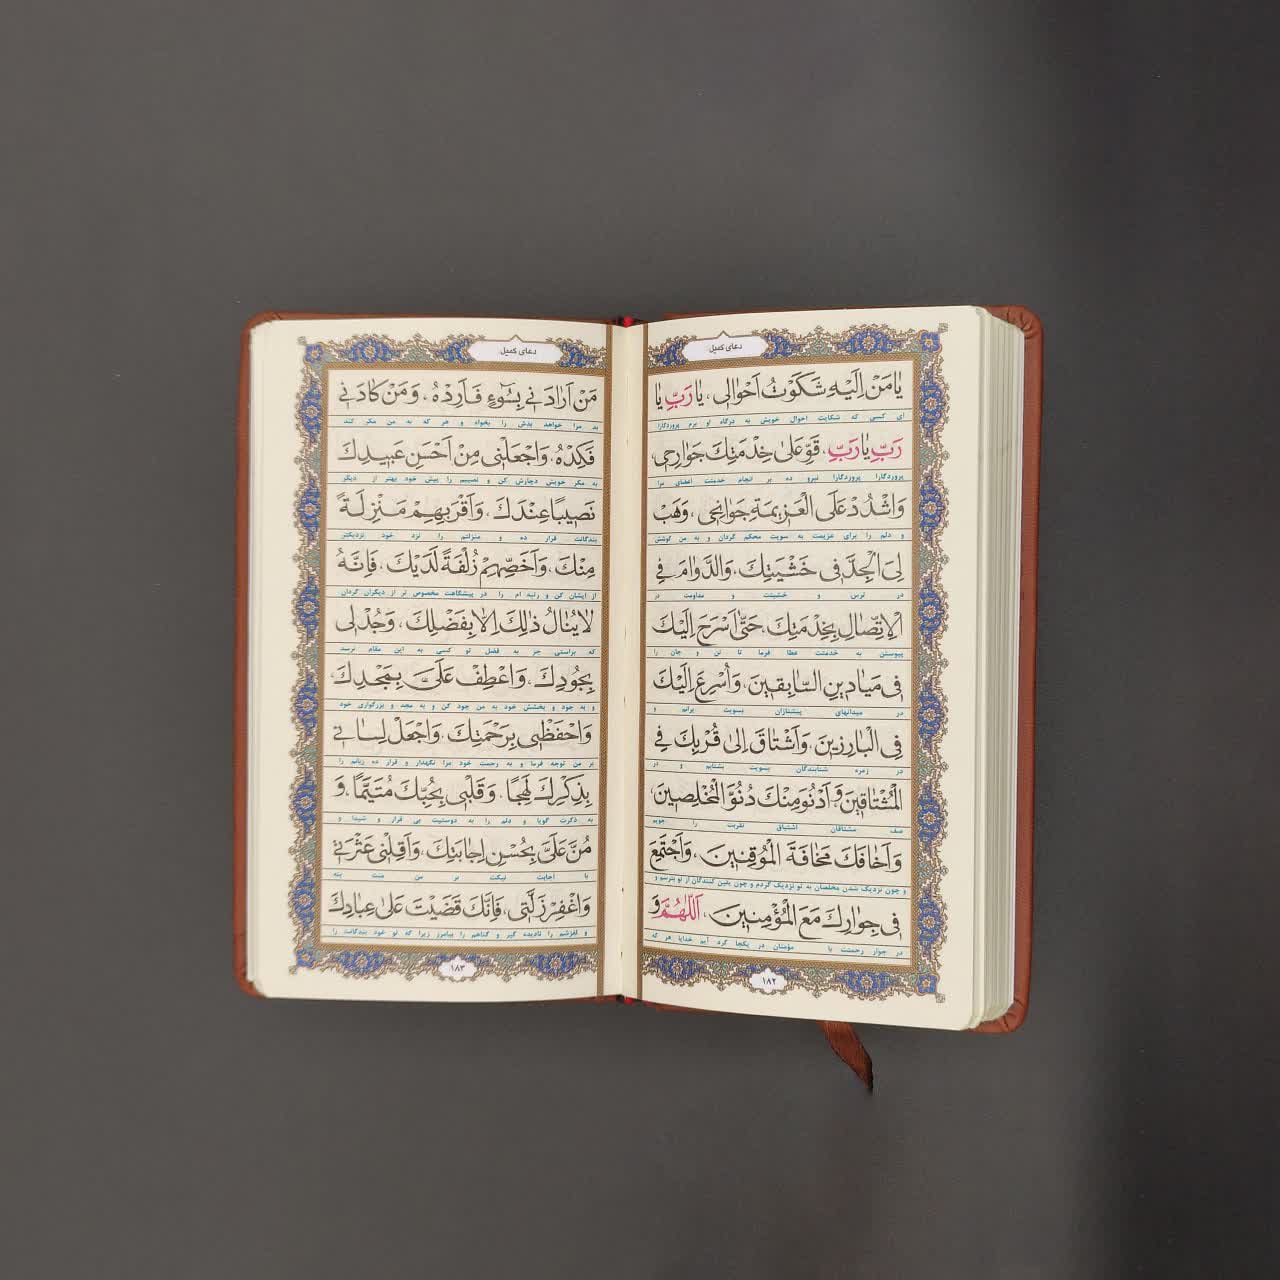 دعای کمیل
يا مَنْ اِلَيْهِ شَكَوْتُ اَحْوالى، يا رَبِّ يا
ای کسی که شکایت احوال خویش به درگاه او برم پروردگارا
رَبِّ يا رَبِّ، قَوِّ عَلى خِدْمَتِكَ جَوارِحى
پروردگارا پروردگارا نیرو ده بر انجام خدمتت اعضای مرا
وَاشْدُدْ عَلَى الْعَزيمَةِ جَوانِحى، وَهَبْ
و دلم را برای عزیمت به سویت محکم گردان و به من کوشش
لِىَ الْجِدَّ فى خَشْيَتِكَ، وَالدَّوامَ فِى
در ترس و خشیتت و مداومت در
الْاِتِّصالِ بِخِدْمَتِكَ، حَتّى اَسْرَحَ اِلَيْكَ
پیوستن به خدمتت عطا فرما تا تن و جان را
فى مَيادينِ السّابِقينَ، وَاُسْرِعَ اِلَيْكَ
در میدانهای پیشتازان بسویت برانم و
فِى الْبارِزينَ، وَاَشْتاقَ اِلى قُرْبِكَ فِى
در زمره شتابندگان بسویت بشتابم و در
الْمُشْتاقينَ، وَاَدْنُوَ مِنْكَ دُنُوَّ الْمُخْلِصينَ
صف مشتاقان اشتیاق تقربت را جویم
وَاَخافَكَ مَخافَةَ الْمُوقِنينَ، وَاَجْتَمِعَ
و چون نزدیک شدن مخلصان به تو نزدیک گردم و چون یقین کنندگان از تو بترسم و
فى جِوارِكَ مَعَ الْمُؤْمِنينَ، اَللّهُمَّ وَ
در جوار رحمتت با مؤمنان در یکجا گرد آیم خدایا هر که
۱۸۲
دعای کمیل
مَنْ اَرادَنى بِسُوءٍ فَاَرِدْهُ، وَمَنْ كادَنى
بد مرا خواهد بدش را بخواه و هر که به من مکر کند
فَكِدْهُ، وَاجْعَلْنى مِنْ اَحْسَنِ عَبيدِكَ
به مکر خویش دچارش کن و نصیبم را پیش خود بهتر از دیگر
نَصيبًا عِنْدَكَ، وَاَقْرَبِهِمْ مَنْزِلَةً
بندگانت قرار ده و منزلتم را نزد خود نزدیکتر
مِنْكَ، وَاَخَصِّهِمْ زُلْفَةً لَدَيْكَ، فَاِنَّهُ
از ایشان کن و رتبه ام را در پیشگاهت مخصوص تر از دیگران گردان
لا يُنالُ ذلِكَ اِلاّ بِفَضْلِكَ، وَجُدْ لى
که براستی جز به فضل تو کسی به این مقام نرسد
بِجُودِكَ، وَاعْطِفْ عَلَىَّ بِمَجْدِكَ
و به جود و بخشش خود به من جود کن و به مجد و بزرگواری خود
وَاحْفَظْنى بِرَحْمَتِكَ، وَاجْعَلْ لِسانى
بر من توجه فرما و به رحمت خود مرا نگهدار و قرار ده زبانم را
بِذِكْرِكَ لَهِجًا، وَقَلْبى بِحُبِّكَ مُتَيَّمًا، وَ
به ذکرت گویا و دلم را به دوستیت بی قرار و شیدا و
مُنَّ عَلَىَّ بِحُسْنِ اِجابَتِكَ، وَاَقِلْنى عَثْرَتى
با اجابت نیکت بر من منت بنه
وَاغْفِرْ زَلَّتى، فَاِنَّكَ قَضَيْتَ عَلى عِبادِكَ
و لغزشم را نادیده گیر و گناهم را بیامرز زیرا که تو خود بندگانت را
۱۸۳